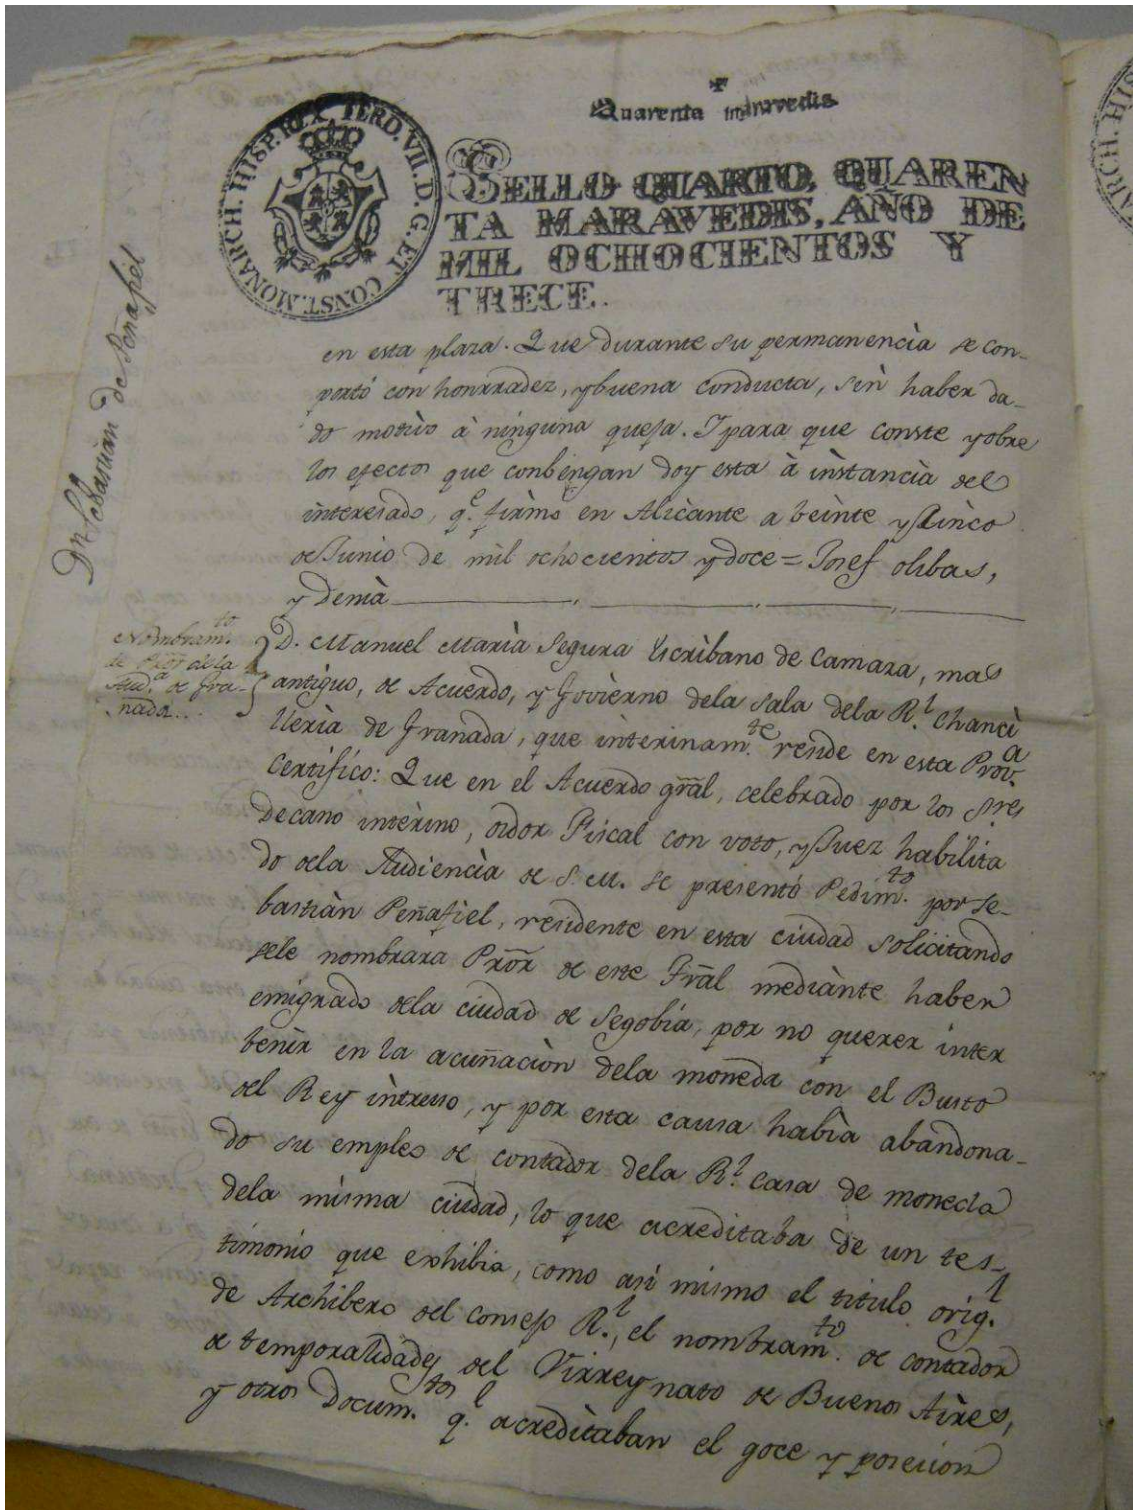 Quarenta maravedis
HISP. REX, FERD. VII. D. G. ET CONST. MONARCH.
SELLO QUARTO, QUAREN
TA MARAVEDIS, AÑO DE
MIL OCHOCIENTOS Y
TRECE.
Dn. Sebastian de Peñafiel
en esta plaza. Que durante su permanencia se con-
portó con honrradez, y buena conducta, sin haber da-
do motivo à ninguna queja. Y para que conste y obre
los efectos que conbengan doy esta à instancia del
interesado, q.e firmó en Alicante a beinte y cinco
de Junio de mil ochocientos y doce = Josef olibas,
y Demà
Nombram.to
de Pror de la
Aud.a de Gra-
nada..
D. Manuel Maria Segura Escribano de Camara, mas
antiguo, de Acuerdo, y Govierno dela sala dela R.l Chanci
lleria de Granada, que interinam.te reside en esta Prov.a
Certifico: Que en el Acuerdo grãl, celebrado por los sres
Decano interino, oidor Fiscal con voto, y Juez habilita
do dela Audiencia de S. M. se presentó Pedim.to por Se-
bastian Peñafiel, residente en esta ciudad solicitando
sele nombrara Prõr de este Trãl mediante haber
emigrado dela ciudad de Segobia, por no querer inter
benir en la acuñacion dela moneda con el Busto
del Rey intruso, y por esta causa habia abandona-
do su empleo de contador dela R.l casa de moneda
dela misma ciudad, lo que acreditaba de un tes-
timonio que exhibia, como asi mismo el titulo orig.l
de Archibero del consejo R.l, el nombram.to de contador
de temporalidades del Virreynato de Buenos Aires,
y otros Docum.tos q.e acreditaban el goce y posesion